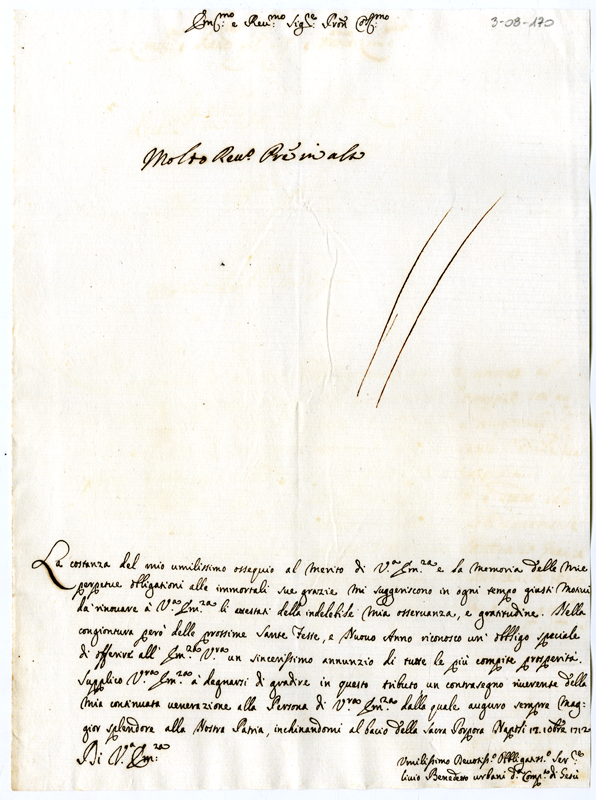 Em.mo e Reu.mo Sig.re Pron Coll.mo
3-08-170
Molto Reu.o Prē in
La costanza del mio umilissimo ossequio al merito di V.a Em.za e la memoria delle mie
perpetue obligationi alle immortali sue grazie mi suggeriscono in ogni tempo giusti Motiui
da rinouare à V.ra Em.za li attestati della indelebile mia osseruanza, e gratitudine. Nella
congiontura però delle prossime Sante Feste, e Nuouo Anno riconosco un' obligo speciale
di offerire all' Em.za V.ra un sincerissimo annunzio di tutte le più compite prosperità.
Supplico V.ra Em.za à degnarsi di gradire in questo tributo un contrasegno riuerente della
mia continuata uenerazione alla Persona di V.ra Em.za dalla quale auguro sempre mag-
gior splendore alla Nostra Patria, inchinandomi al bacio della Sacra Porpora Napoli 12. Xbre 1712
Di V.a Em.za
Umilissimo Deuotiss.o Obligatis.o Ser.re
Liuio Benedetto Urbani d.a Comp.a di Giesù